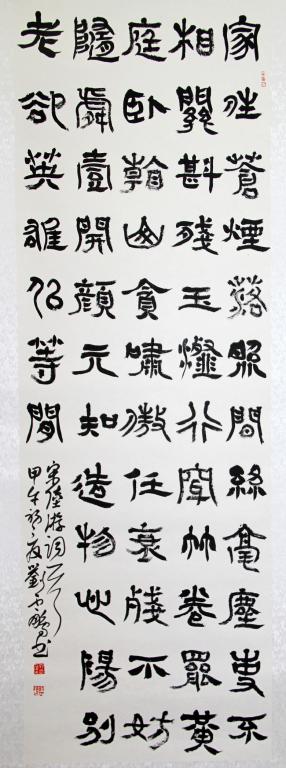 家住蒼煙落照間絲毫塵事不
相關斟殘玉瀣行穿竹卷罷黃
庭臥看山貪嘯傲任衰殘不妨
隨處壹開顏元知造物心腸別
老卻英雄似等閒
宋陸游詞一首
甲午初夏劉書